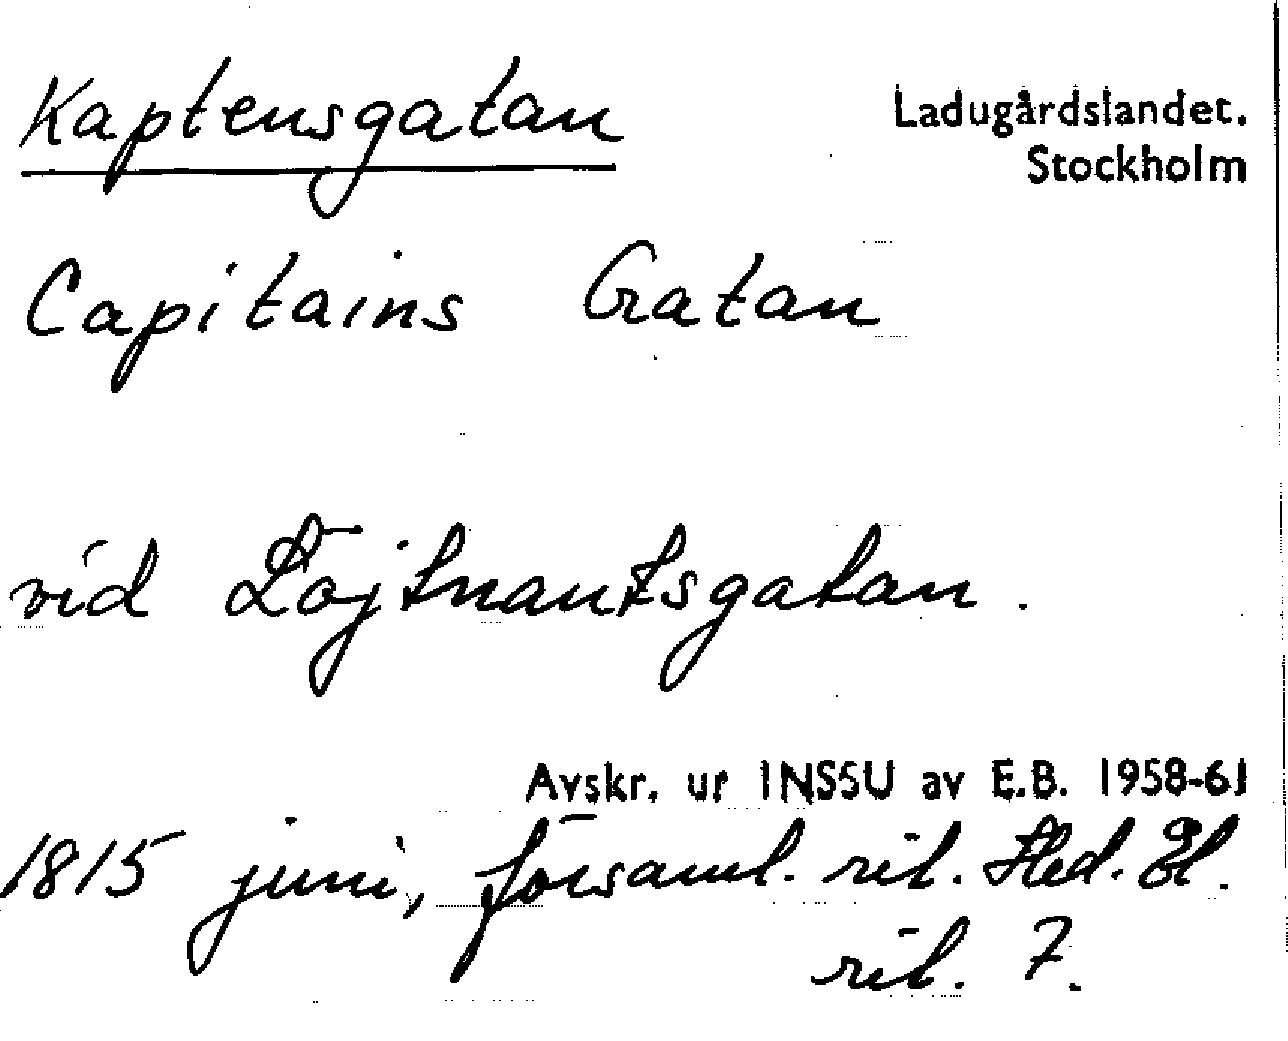 Kaptensgatan
Ladugårdslandet.
Stockholm
Capitains Gatan
vid Löjtnantsgatan.
Avskr. ur INSSU av E.B. 1958-61
1815 juni, församl. rit. Hed. El.
rit. 7.